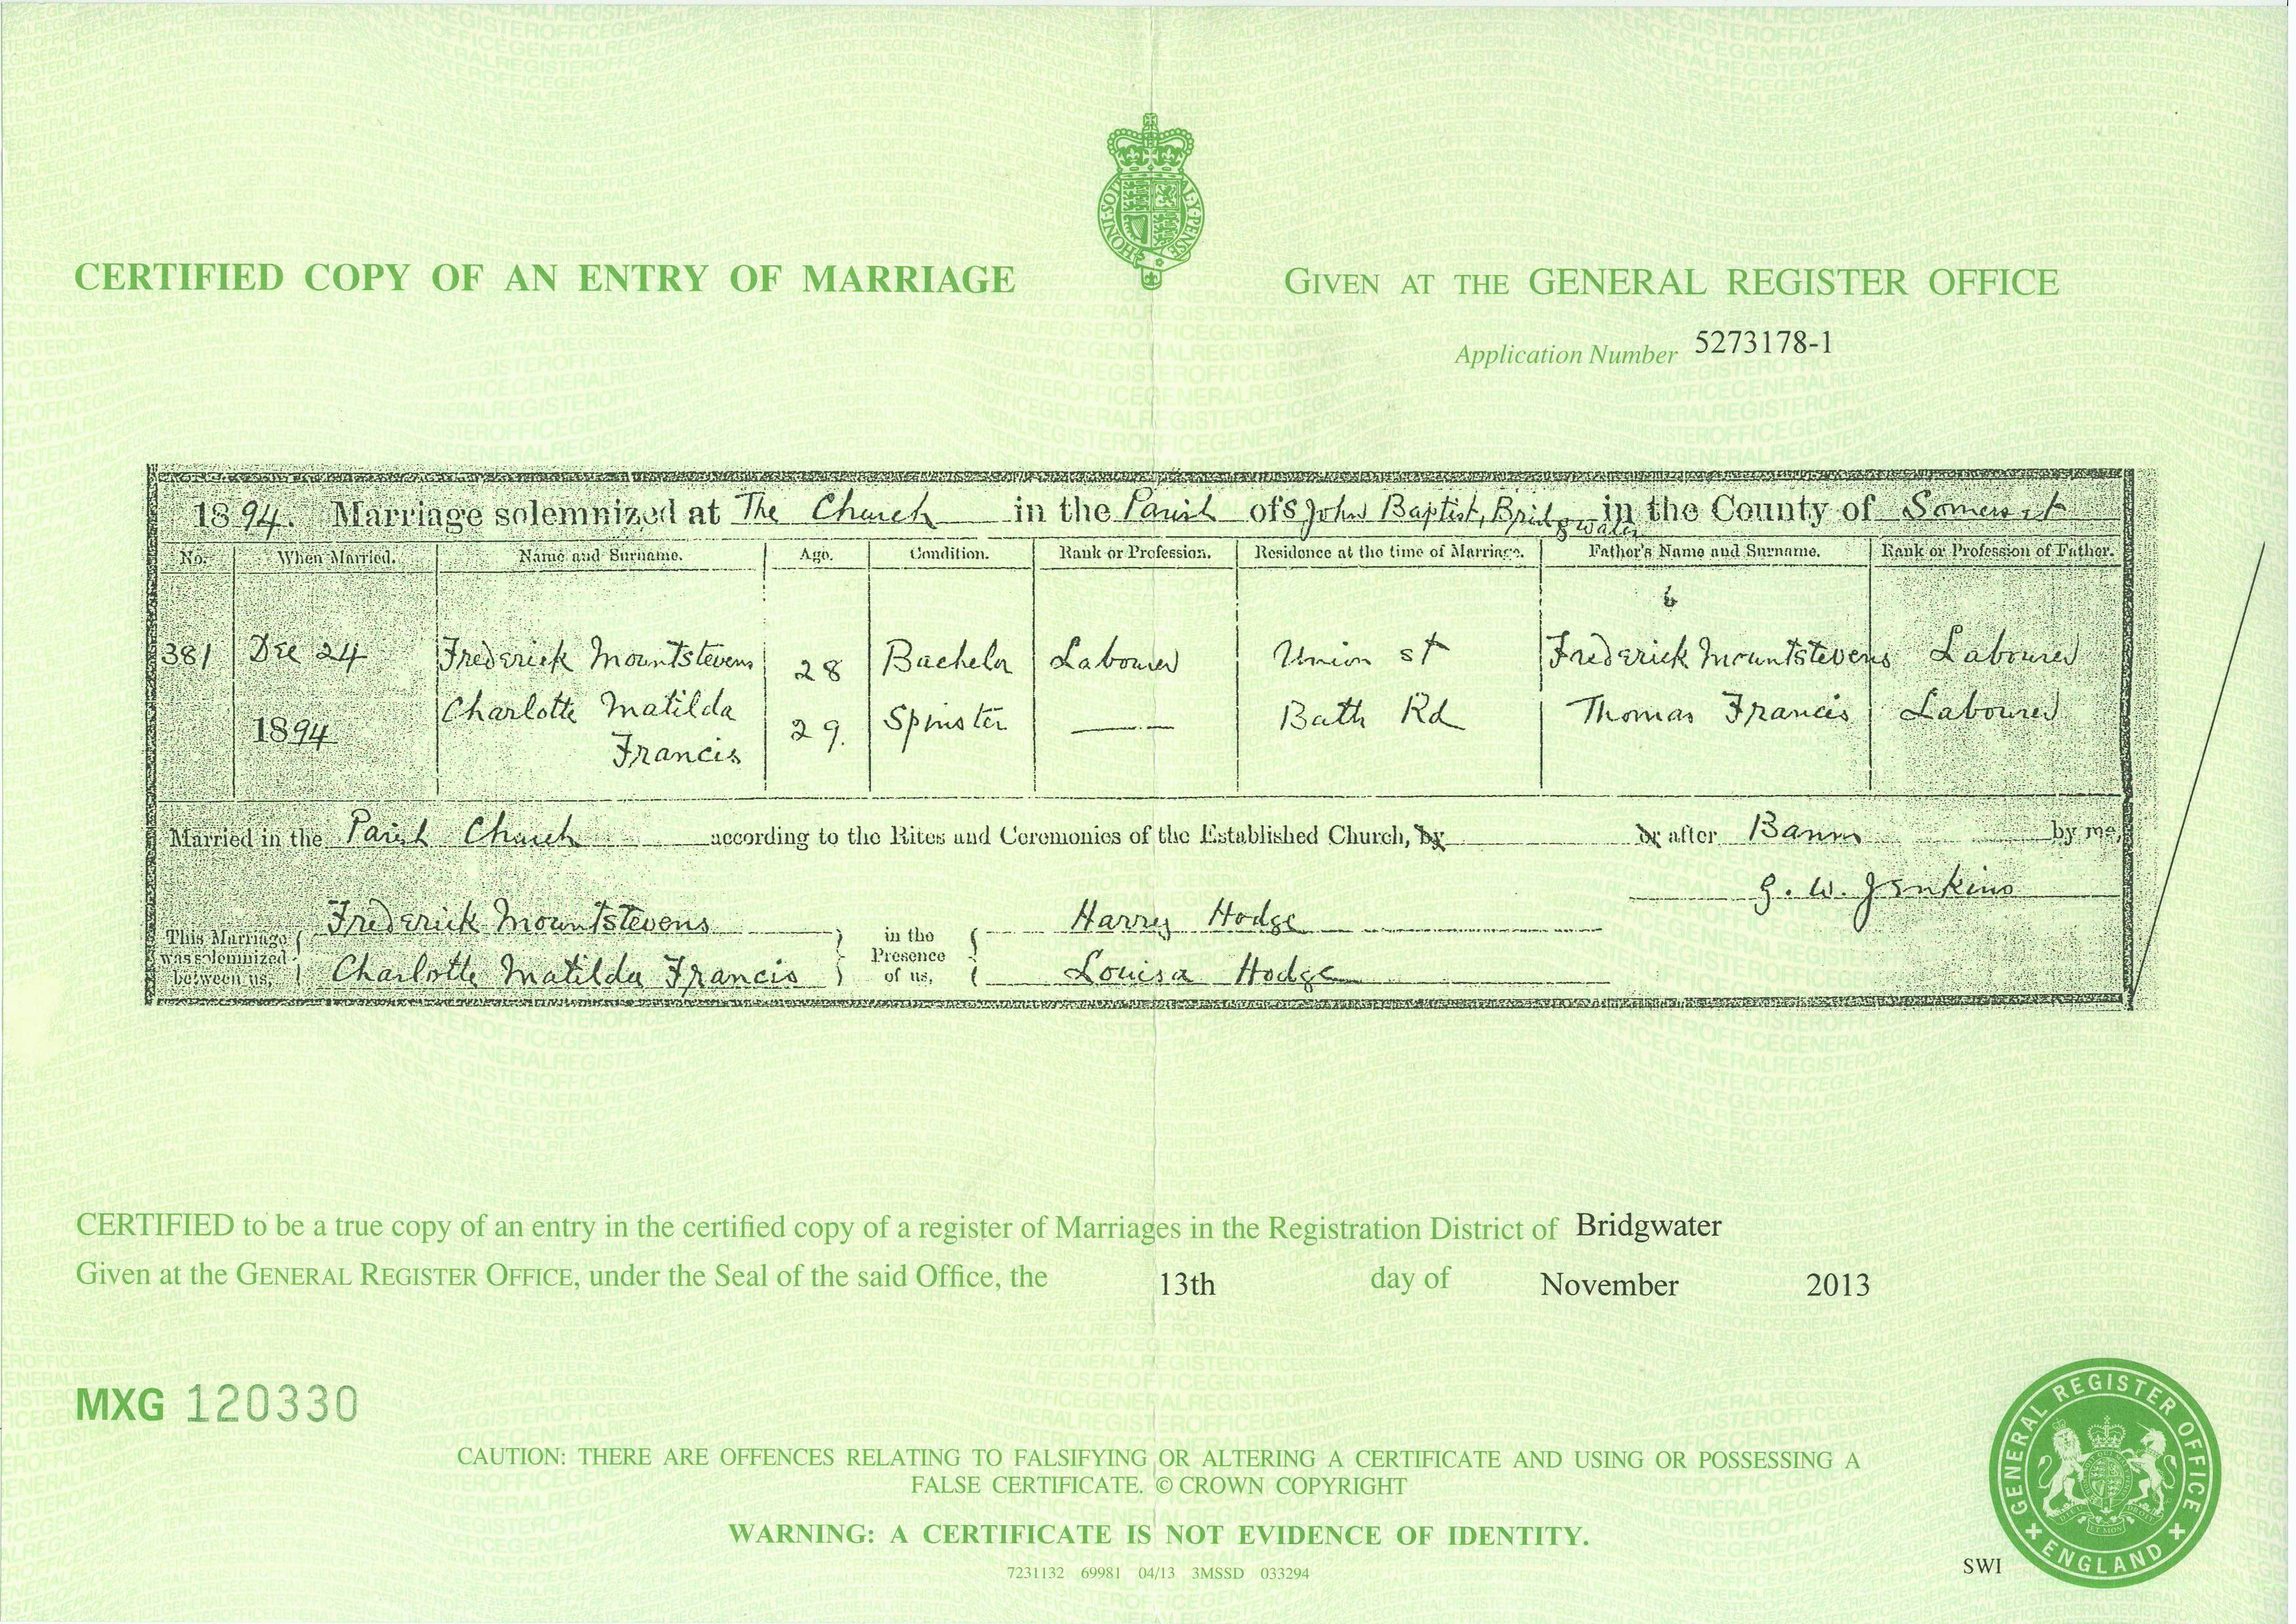 CERTIFIED COPY OF AN ENTRY OF MARRIAGE
GIVEN AT THE GENERAL REGISTER OFFICE
Application Number 5273178-1
1894. Marriage solemnized at The Church in the Parish of S John Baptist, Bridgwater in the County of Somerset
No. When Married. Name and Surname. Age. Condition. Rank or Profession. Residence at the time of Marriage. Father's Name and Surname. Rank or Profession of Father.
381 Dec 24 Frederick Mountstevens 28 Bachelor Labourer Union St Frederick Mountstevens Labourer
1894 Charlotte Matilda Francis 29. Spinster Bath Rd Thomas Francis Labourer
Married in the Parish Church according to the Rites and Ceremonies of the Established Church, by or after Banns by me,
G. W. Jenkins
This Marriage was solemnized between us, Frederick Mountstevens
Charlotte Matilda Francis
in the Presence of us,
Harry Hodge
Louisa Hodge
CERTIFIED to be a true copy of an entry in the certified copy of a register of Marriages in the Registration District of Bridgwater
Given at the GENERAL REGISTER OFFICE, under the Seal of the said Office, the 13th day of November 2013
MXG 120330
CAUTION: THERE ARE OFFENCES RELATING TO FALSIFYING OR ALTERING A CERTIFICATE AND USING OR POSSESSING A
FALSE CERTIFICATE. © CROWN COPYRIGHT
WARNING: A CERTIFICATE IS NOT EVIDENCE OF IDENTITY.
7231132 69981 04/13 3MSSD 033294
SWI
GENERAL REGISTER OFFICE
ENGLAND